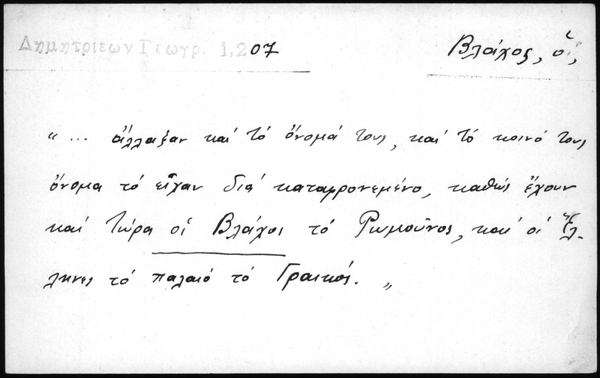 Δημητριέων Γεωγρ. 1, 207
Βλάχος, ὁ,
„ ... ἄλλαξαν καὶ τὸ ὄνομά τους, καὶ τὸ κοινό τους
ὄνομα τὸ εἶχαν διὰ καταφρονεμένο, καθὼς ἔχουν
καὶ τώρα οἱ Βλάχοι τὸ Ρωμοῦνος, καὶ οἱ Ἕλ-
ληνες τὸ παλαιὸ τὸ Γραικός. „